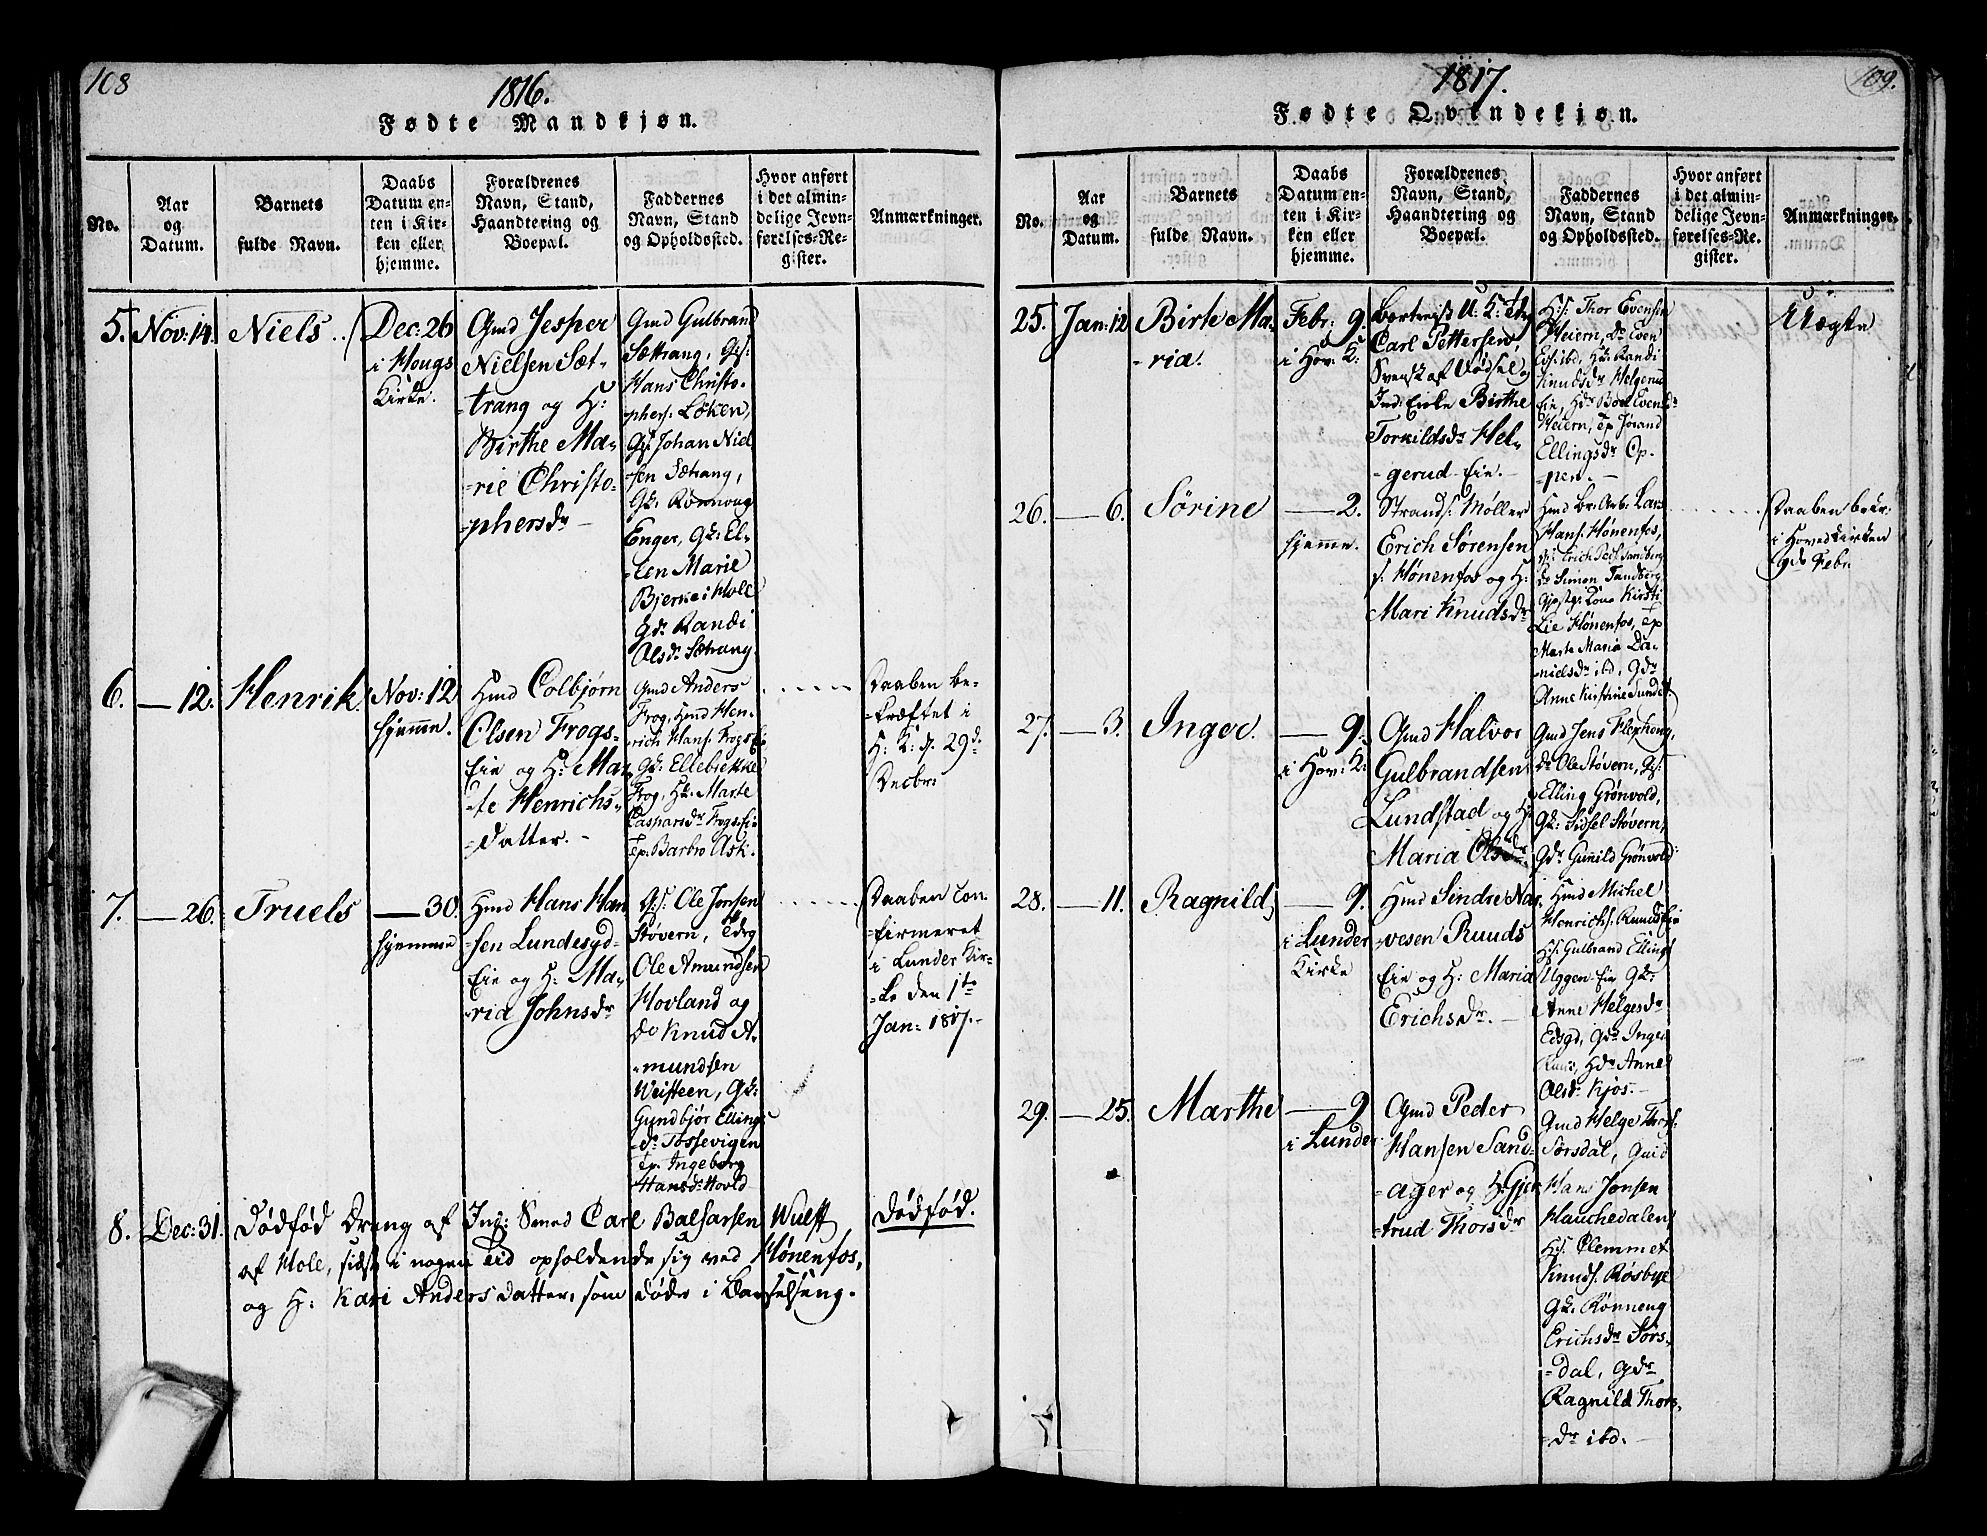 108
1816.
Fødte Mandkjøn.
No.
Aar
og
Datum.
Barnets
fulde Navn.
Daabs
Datum en-
ten i Kir-
ken eller
hjemme.
Forældrenes
Navn, Stand,
Haandtering og
Boepæl.
Faddernes
Navn, Stand
og Opholdssted.
Hvor anført
i det almin-
delige Jevn-
førelses-Re-
gister.
Anmærkninger.
5.
Nov: 14.
Niels
Dec: 26
i Hougs
Kirke.
Gmd Jesper
Nielsen Sæt-
-trang og H:
Birthe Ma-
-rie Christo-
-phersdr
Gmd Gulbrand
Sættrang, G:s:
Hans Christo-
-phers: Løken,
G:s: Johan Niel
-sen Sætrang,
Gk: Rønnoug
Enger, Gk: El-
-len Marie
Bjerke i Hole
Gdr Randi
Olsdr Sætrang
6.
— 12.
Henrik
Nov: 12
hjemme.
Hmd Colbjørn
Olsen Frogs-
Eie og H: Mar-
-te Henrichs-
-datter.
Gmd Anders
Frog, Hmd Hen-
-rich Hans: Frogs Eie
Gk: Ellebrekke
Frog, Hk: Marte
Caspersdr Frogs Eie
Ep: Barbro Ask.
Daaben be-
-kræftet i
H: K: d. 29d
Decbr:
7.
— 26.
Truels
— 30.
hjemme
Hmd Hans Han
-sen Lundesgd-
Eie og H: Ma-
-ria Johnsdr
G:s: Ole Jonsen
Støvern,
Ole Amundsen
Hovland og
do Knud A-
-mundsen
Veisteen, Gk:
Gundbjør Ellings
-dr Tossevigen
Ep: Ingeborg
Hansdr Hovld
Daaben con-
-firmeret
i Lunder Kir-
-ke den 1te
Jan: 1817.
8.
Dec: 31.
Dødfød Dreng af Carl Balsarsen Wulff
af Hole, sidst i nogen tid opholdende sig ved Hønenfos,
og H: Kari Andersdatter, som døde i Barselseng.
Dødfød.
109.
1817.
Fødte Qvindekjøn.
No.
Aar
og
Datum.
Barnets
fulde Navn.
Daabs
Datum en-
ten i Kir-
ken eller
hjemme.
Forældrenes
Navn, Stand,
Haandtering og
Boepæl.
Faddernes
Navn, Stand
og Opholdssted.
Hvor anført
i det almin-
delige Jevn-
førelses-Re-
gister.
Anmærkninger.
25.
Jan: 12
Birte Ma-
-ria.
Febr: 9.
i Hov: K:
Carl Pettersen,
Svensk af Fødsel og
Ind: Enke Birthe
Torkildsdr Hel-
-gerud-Eie.
H:s: Thor Evensen
Heiern, Do Even
ibd, Hk: Randi
Knudsdr Helgerud
Eie, Hdr Evensdr
Heiern, Ep Jørand
Ellingsdr Op-
-pen.
Uægte
26.
— 6.
Sørine
— 2.
hjemme.
Strands: Møller
Erich Sørensen
p: Hønenfos og H:
Mari Knudsdr
Hmd Br: Arb: Lars
Hans: Hønenfos,
do Simon Tandberg
Kone Kirsti
Lie Hønenfos, Ep
Marte Maria Da-
-nielsdr ibd, Gdr
Anne Kirstine
Daaben bekr:
i Hovedkirken
9de Febr
27.
— 3.
Inger.
— 9.
i Hov: K:
Gmd Halvor
Gulbrandsen
Lundstad og H:
Maria Olsdr
Gmd Jens Klephong,
do Ole Støvern, G:s:
Elling Grønvold,
Gk: Sidsel Støvern,
Gdr Gunild Grønvold
28.
— 11.
Ragnild
— 9.
i Lunder
Kirke
Hmd Sindre Nar-
-vesen Ruuds
Eie og H: Maria
Erichsdr.
Hmd Michel
Henrichs: Ruuds Eie
H:s: Gulbrand Ellings
Uggen Eie Gk:
Anne Helgesdr
Edsgd, Gdr Inger
Ruud, Hdr Anne
Olsdr Kjos.
29.
— 25.
Marthe
— 9
i Lunder
Gmd Peder
Hansen Sand-
-ager og H: Gjer
-trud Thorsdr
Gmd Helge Thors:
Sørsdal, Gmd
Hans Jonsen
Hauchedalen
H:s: Clemmet
Knuds: Røsbye
Gk: Rønneug
Erichsdr Sørs-
-dal, Gdr
Ragnild Thors-
-dr ibd.